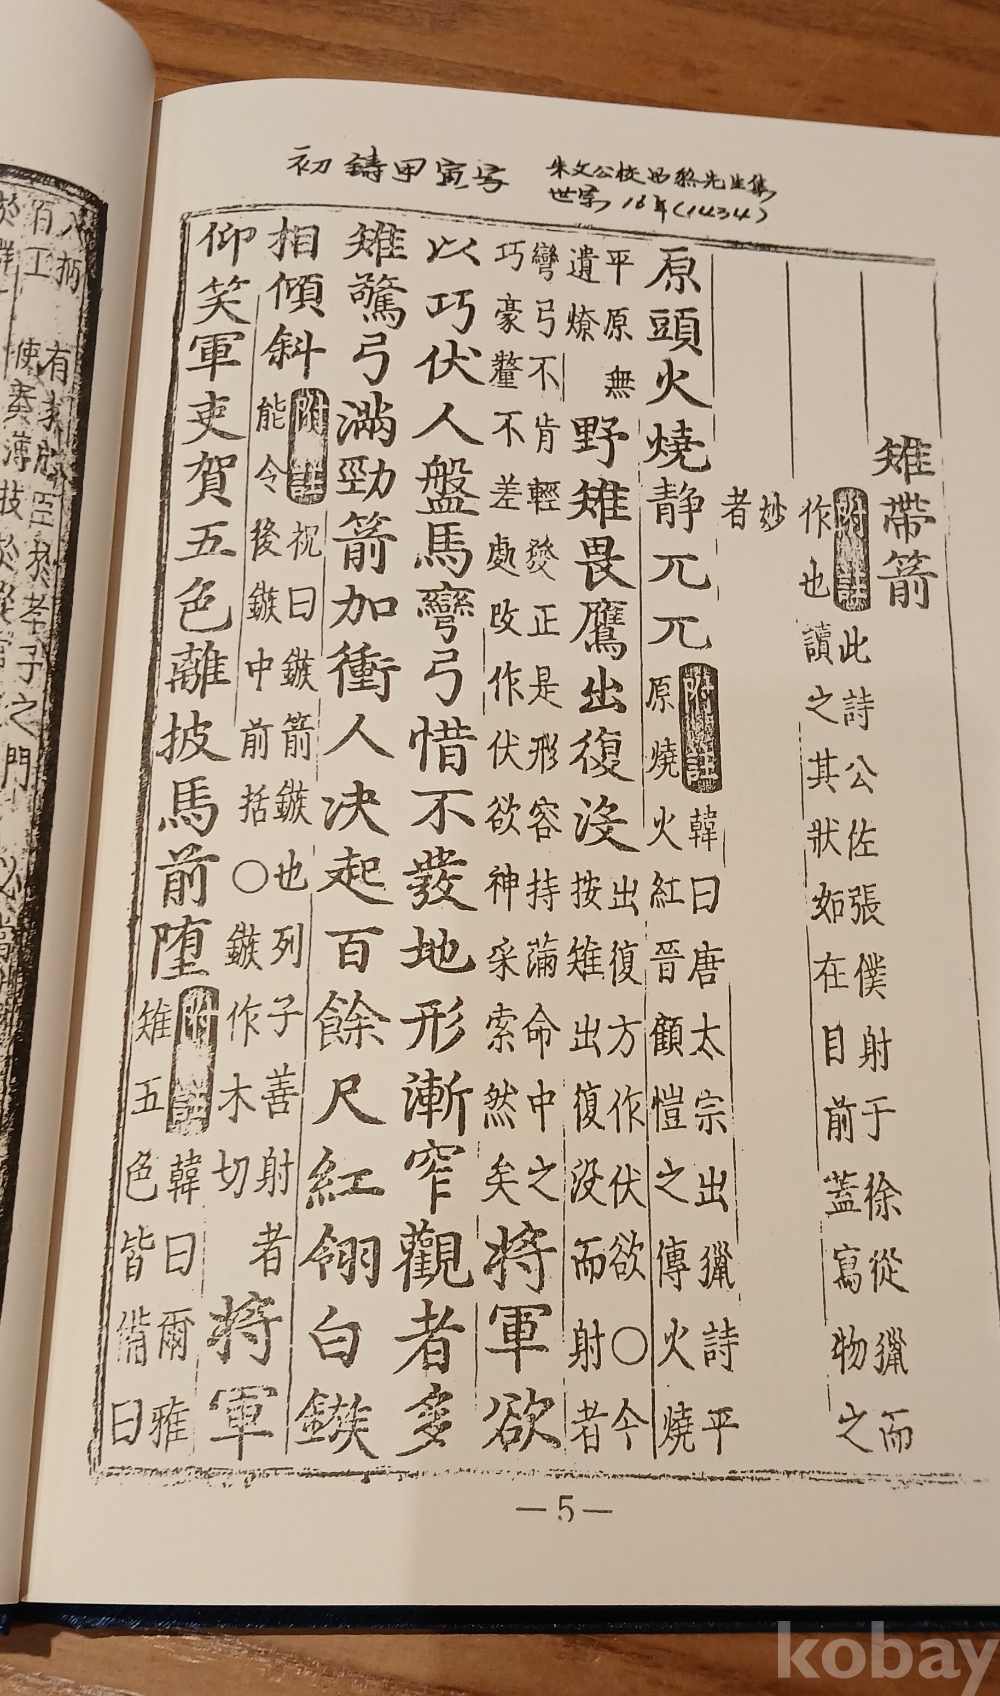 初鑄甲寅字
朱文公校昌黎先生集
世宗 16年(1434)
雉帶箭
附註 此詩公佐張僕射于徐從獵而
作也讀之其狀如在目前蓋寫物之
妙
者
原頭火燒静兀兀
附註 韓曰唐太宗出獵詩平
原燒火紅晉顧愷之傳火燒
平原無
遺燎
野雉畏鷹出復没
出復方作伏欲〇今
按雉出復没而射者
彎弓不肯輕發正是形容持滿命中之
巧豪釐不差處改作伏欲神采索然矣
將軍欲
以巧伏人盤馬彎弓惜不發地形漸窄觀者多
雉驚弓滿勁箭加衝人决起百餘尺紅翎白鏃
相傾斜
附註 祝曰鏃箭鏃也列子善射者
能令後鏃中前括〇鏃作木切
將軍
仰笑軍吏賀五色離披馬前堕
附註 韓曰爾雅
雉五色皆備曰
—5—
八柄
百工
孝子之門
kobay